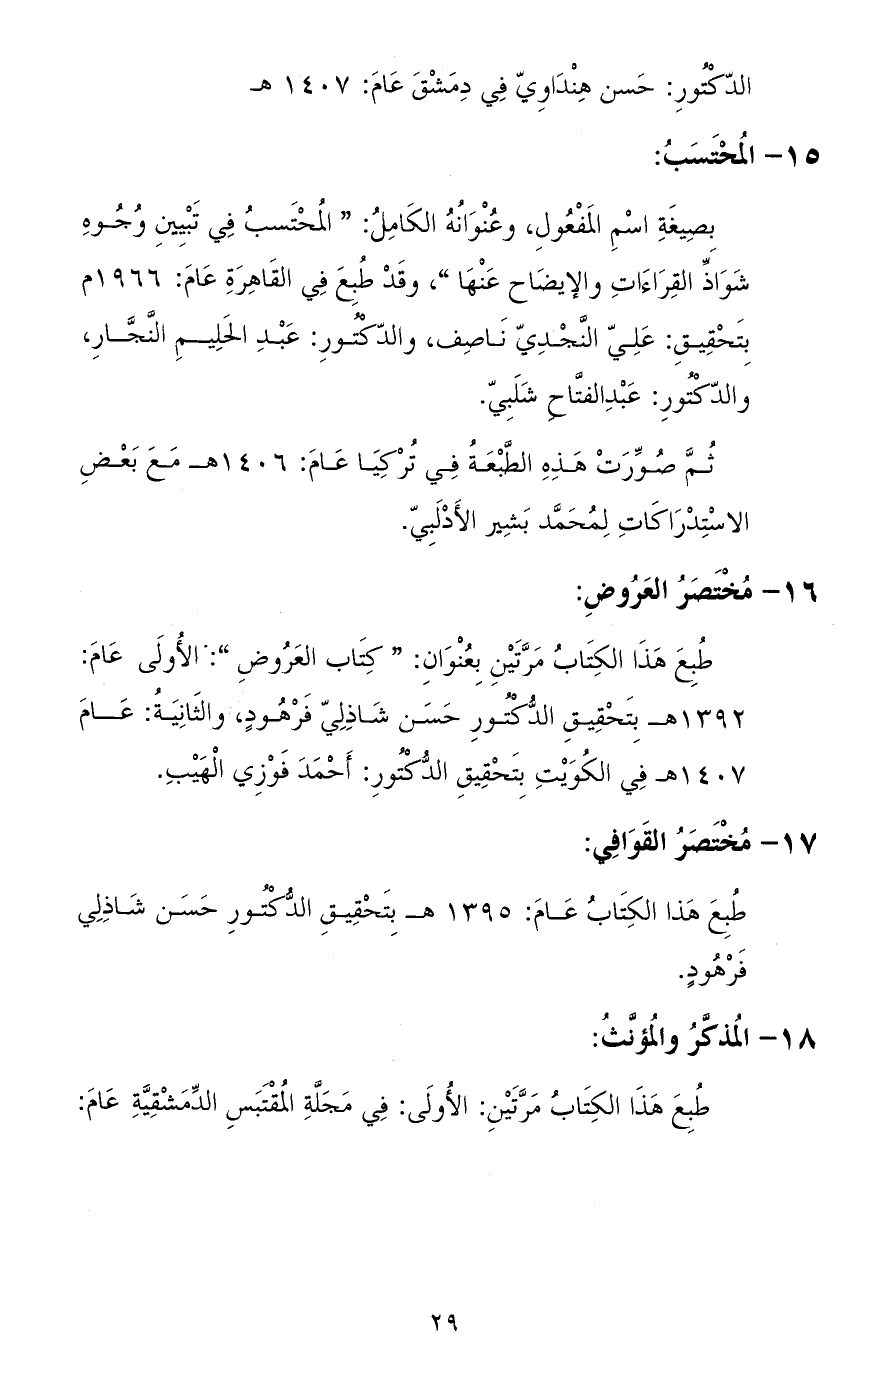 الدّكْتُورِ: حَسن هِنْدَاوِيّ فِي دِمَشْقَ عَامَ: ١٤٠٧ هـ
١٥- المُحْتَسَبُ:
بِصِيغَةِ اسْمِ المَفْعُولِ، وعُنْوَانُهُ الكَامِلُ: ” المُحْتَسبُ فِي تَبْيِينِ وُجُوهِ
شَوَاذِّ القِرَاءَاتِ والإيضَاحِ عَنْهَا “، وقَدْ طُبِعَ فِي القَاهِرَةِ عَامَ: ١٩٦٦م
بِتَحْقِيقِ: عَلِيّ النَّجْدِيّ نَاصِف، والدّكْتُورِ: عَبْدِ الحَلِيمِ النَّجَّارِ،
والدّكْتُورِ: عَبْدِالفتَّاحِ شَلَبِيّ.
ثُمَّ صُوِّرَتْ هَذِهِ الطَّبْعَةُ فِي تُرْكِيَا عَامَ: ١٤٠٦هـ مَعَ بَعْضِ
الاسْتِدْرَاكَاتِ لِمُحَمَّد بَشِير الأَدْلَبِيّ.
١٦- مُخْتَصَرُ العَرُوضِ:
طُبِعَ هَذَا الكِتَابُ مَرَّتَيْنِ بِعُنْوَانِ: ” كِتَاب العَرُوض “: الأُولَى عَامَ:
١٣٩٢هـ بِتَحْقِيقِ الدُّكْتُورِ حَسَن شَاذِلِيّ فَرْهُودٍ، والثَّانِيَةُ: عَامَ
١٤٠٧هـ فِي الكُوَيْتِ بِتَحْقِيقِ الدُّكْتُورِ: أَحْمَدَ فَوْزِي الْهَيْبِ.
١٧- مُخْتَصَرُ القَوَافِي:
طُبِعَ هَذا الكِتَابُ عَامَ: ١٣٩٥ هـ بِتَحْقِيقِ الدُّكْتُورِ حَسَن شَاذِلِي
فَرْهُودٍ.
١٨- المُذكَّرُ والمُؤنَّثُ:
طُبِعَ هَذَا الكِتَابُ مَرَّتَيْنِ: الأُولَى: فِي مَجَلَّةِ المُقْتَبَسِ الدِّمَشْقِيَّةِ عَامَ:
٢٩